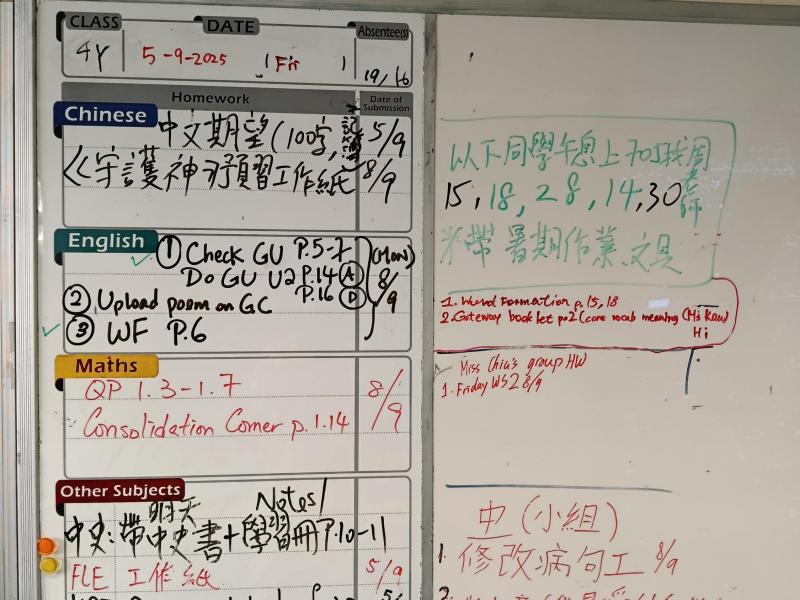 CLASS DATE Absentee(s)
4Y 5-9-2025 Fri 19, 16
Homework Date of Submission
Chinese
中文期望(100字, 5/9
《守護神》預習工作紙 8/9
English
① Check GU P.5-7 (Mon)
Do GU U2 P.14 Ⓐ 8/9
P.16 Ⓓ
② Upload poem on GC
③ WF P.6
Maths
QP 1.3-1.7 8/9
Consolidation Corner p.1.14
Other Subjects
明天 Notes/
中史:帶中史書+學習冊P.10-11
FLE 工作紙 5/9
以下同學午息上705找周老師
15, 18, 28, 14, 30
米帶暑期作業、文具
1. Word Formation p.15, 18
2. Gateway booklet p.2 (core vocab meaning (Ms Kau)
Hi
Miss Chia's group HW
1. Friday WS2 8/9
中(小組)
1. 修改病句工 8/9
2.